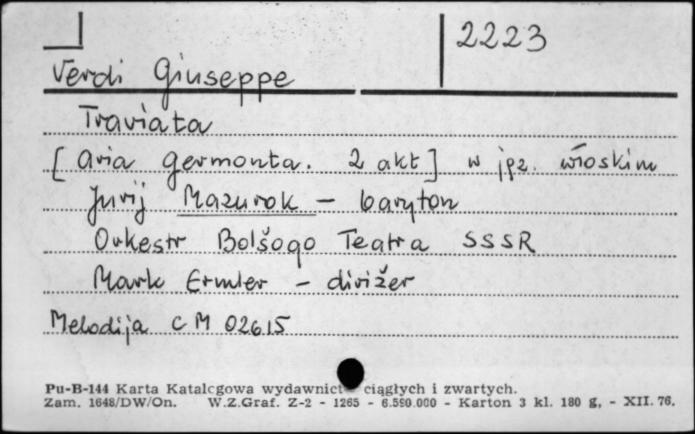 2223
Verdi Giuseppe
Traviata
[Aria Germonta. 2 akt] w jęz. włoskim
Jurij Mazurok - baryton
Orkestr Bolšogo Teatra SSSR
Mark Ermler - dirižer
Melodija CM 02615
Pu-B-144 Karta Katalogowa wydawnict ciągłych i zwartych.
Zam. 1648/DW/On. W.Z.Graf. Z-2 - 1265 - 6.590.000 - Karton 3 kl. 180 g, - XII. 76.